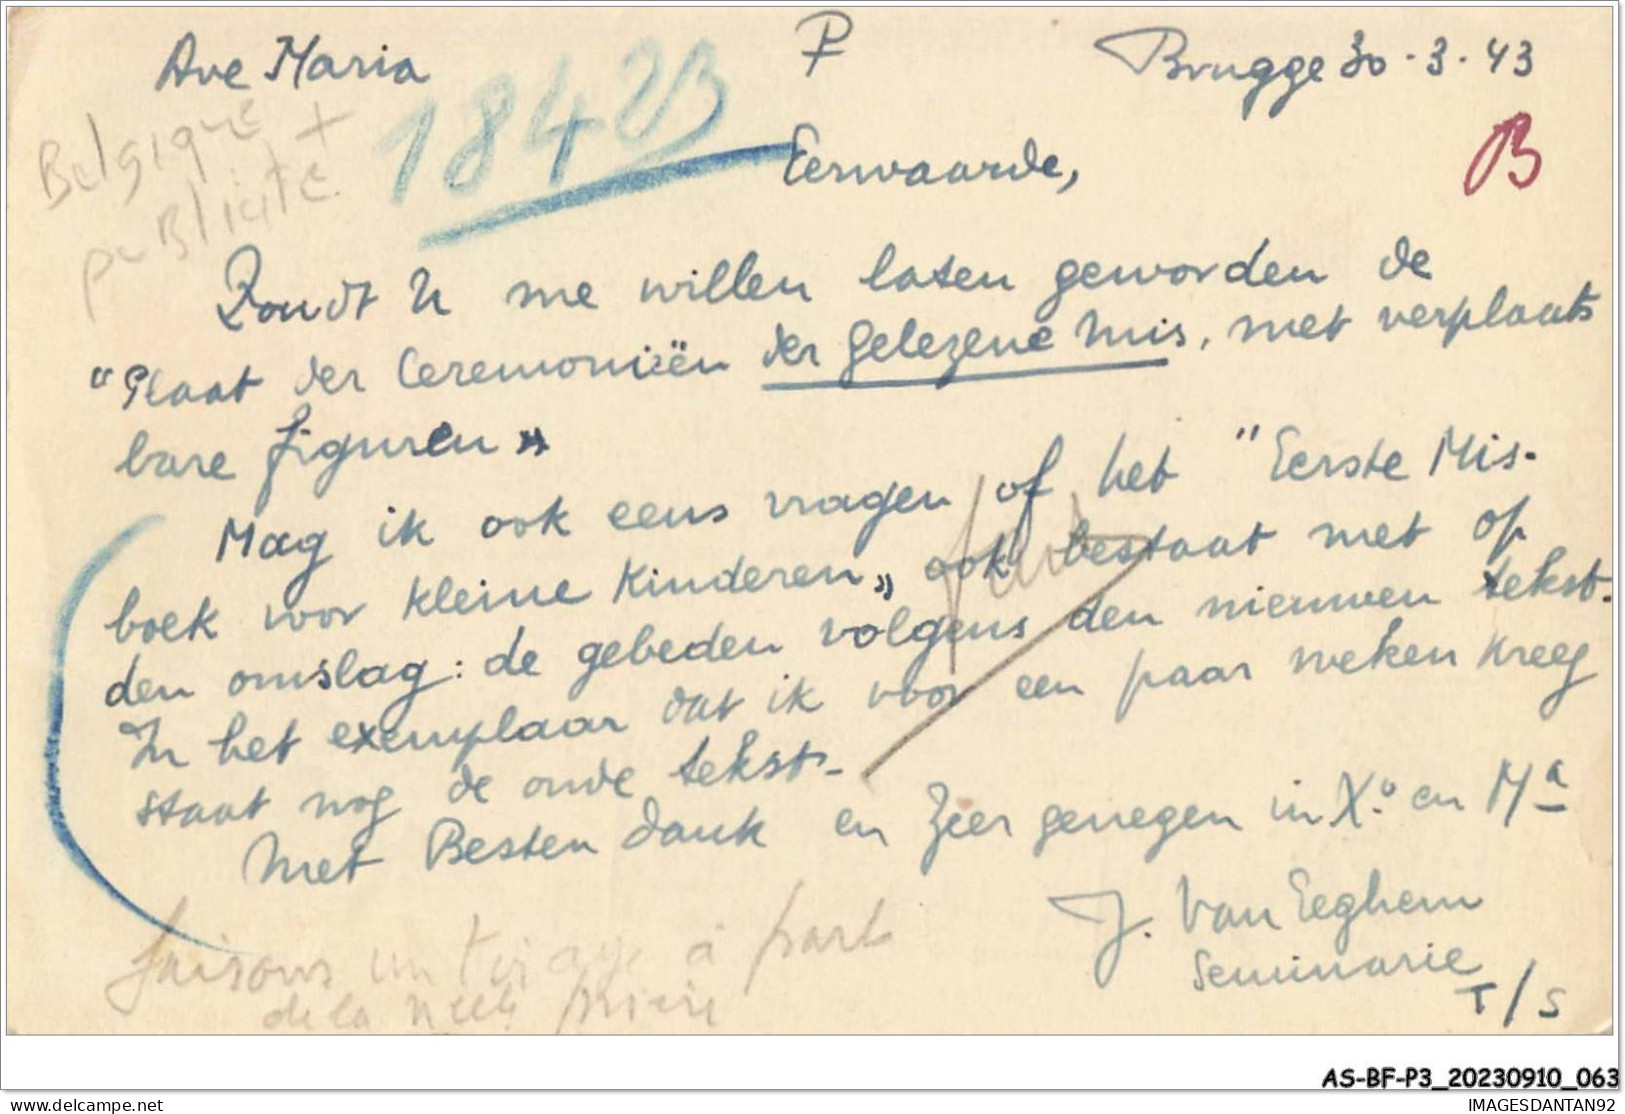 Ave Maria
Brugge 30-3-43
Belgique +
publicité
18423
B
Eerwaarde,
Zoudt U me willen laten geworden de
"Plaat der Ceremoniëen der gelezene Mis, met verplaats
bare figuren"
Mag ik ook eens vragen of het "Eerste Mis-
boek voor kleine kinderen" ook bestaat met op
den omslag: de gebeden volgens den nieuwen tekst.
In het exemplaar dat ik voor een paar weken kreeg
staat nog de oude tekst.
Met Besten dank en Zeer genegen in X.º en Mª
J. Van Eeghem
Seminarie
T/S
faisons un tirage à part
de la prière
AS-BF-P3_20230910_063
delcampe.net
IMAGESDANTAN92